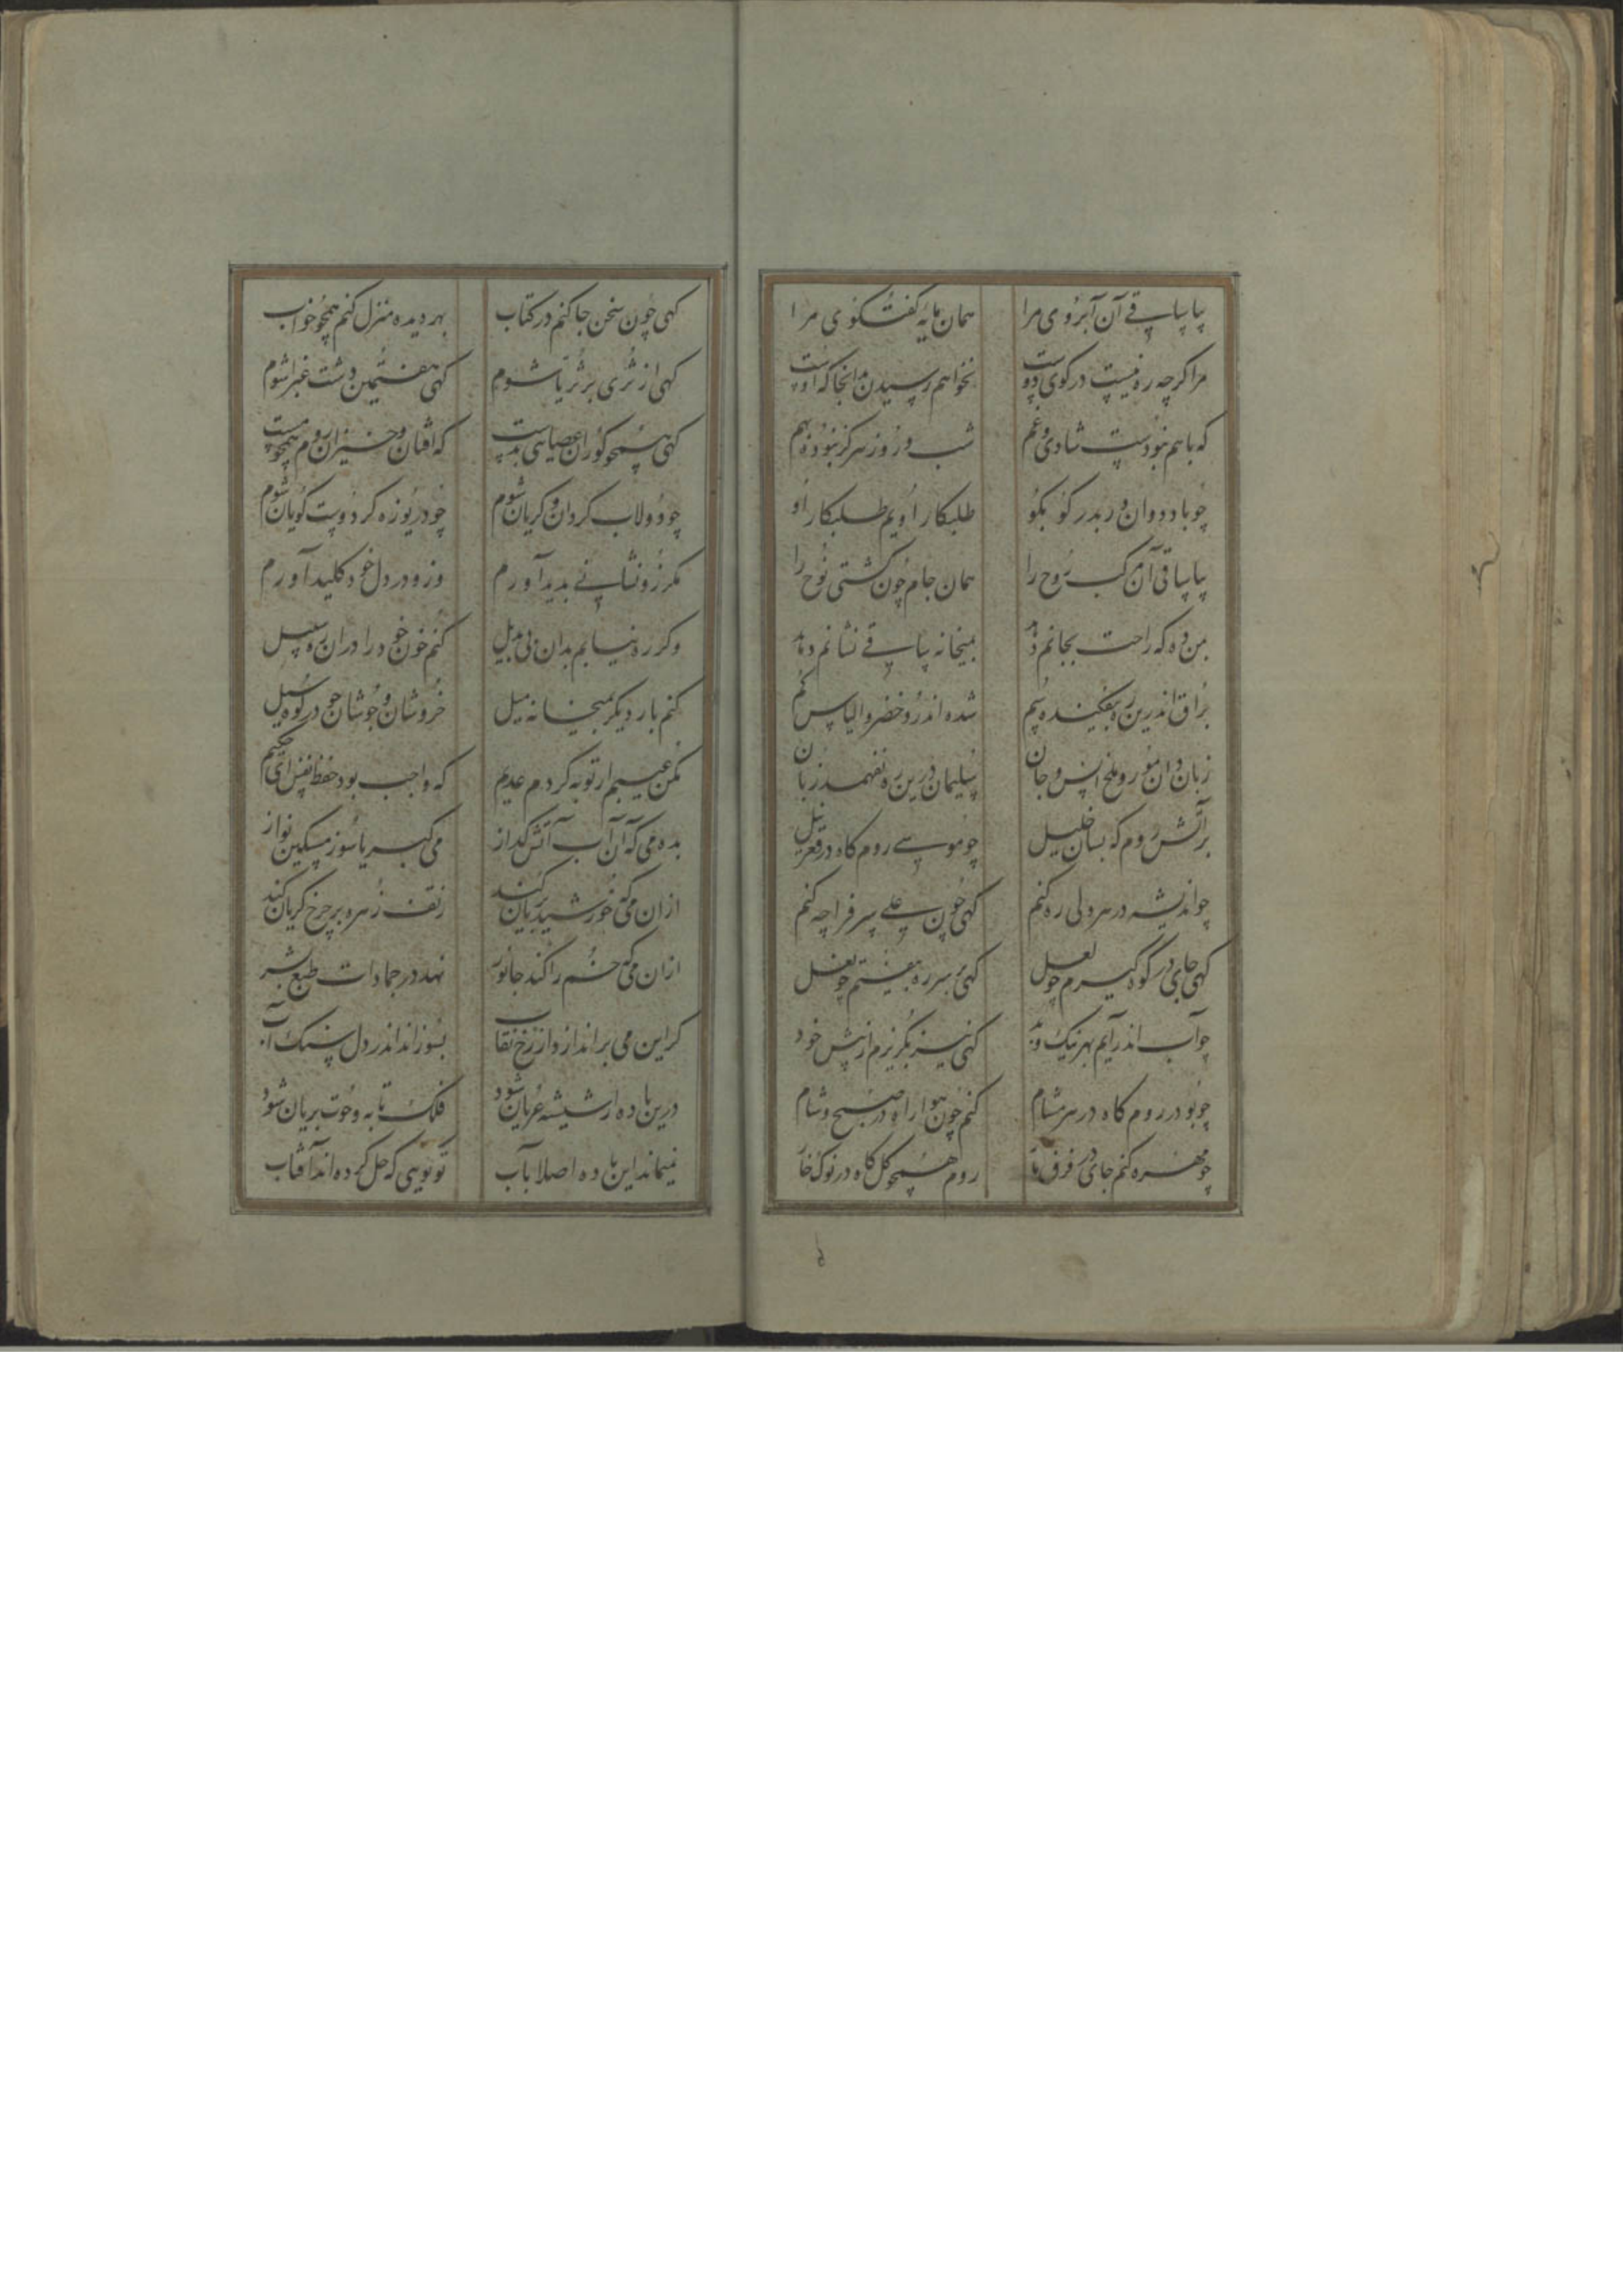 بیا ساقی آن آبروی مرا همان مایه گفتگوی مرا
مرا کرچه ره نیست در کوی دوست نخواهم رسیدن بدانجا که اوست
که باهم نبودست شادی و غم شب و روز هرکز نبوده بهم
چو باد دوان در بدر کو بکو طلبکار اویم طلبکار او
بیا ساقی آن مرکب روح را همان جام چون کشتی نوح را
بمن ده که راحت بجانم دهد بمیخانه ساقی نشانم دهد
براق اندرین ره بیفکنده سم شده اندرو خضر و الیاس کم
زبان دان مور و ملخ انس و جان سلیمان درین ره نفهمد زبان
بر آتش روم که بسان خلیل چو موسی روم کاه در قعر نیل
چو اندیشه در هر دلی ره کنم کهی چون علی سر فرا چه کنم
کهی جای در کوه کیرم چو لعل کهی بر سر ره بیفتم چو نعل
چو آب اندر آیم بهر نیک و بد کهی نیز بکریزم از پیش خود
چو بو در روم کاه در هر مشام کنم چون هوا راه در صبح و شام
چو مهره کنم جای در فرق مار روم همچو کل کاه در نوک خار
کهی چون سخن جا کنم در کتاب بهر دیده منزل کنم همچو خواب
کهی از ثری بر ثریا شوم کهی هفتمین دشت غبرا شوم
کهی همچو کوران عصایی بدست که افتان و خیزان روم همچو مست
چو دولاب کردان و کریان شوم چو دریوزه کر دوست کویان شوم
مکر زو نشانی بدید آورم وزو در دل خود کلید آورم
وکر ره نیابم بدان بی بدیل کنم خون خود را در آن ره سبیل
کنم بار دیکر بمیخانه میل خروشان و جوشان چو در کوه سیل
مکن عیبم ار توبه کردم عدیم که واجب بود حفظ نفس ای حکیم
بده می که آن آب آتش کداز می کبریا سوز مسکین نواز
ازان می که خورشید بریان کند ز تف زهره بر چرخ کریان کند
ازان می که خم را کند جانور نهد در جمادات طبع بشر
کر این می براندازد از رخ نقاب بسوزاند اندر دل سنک آب
درین باده ار شیشه عریان شود فلک تابه و حوت بریان شود
نمیماند این باده اصلا بآب تو کویی که حل کرده اند آفتاب